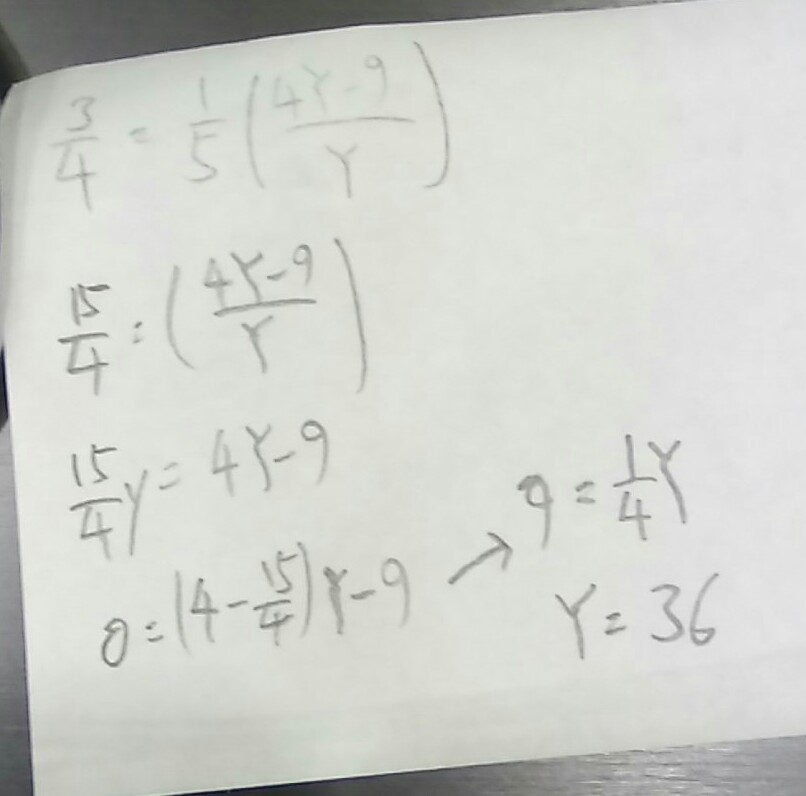 3/4 = 1/5 ( (4Y-9)/Y )
15/4 = ( (4Y-9)/Y )
15/4 Y = 4Y-9
0 = (4 - 15/4) Y - 9 → 9 = 1/4 Y
Y = 36